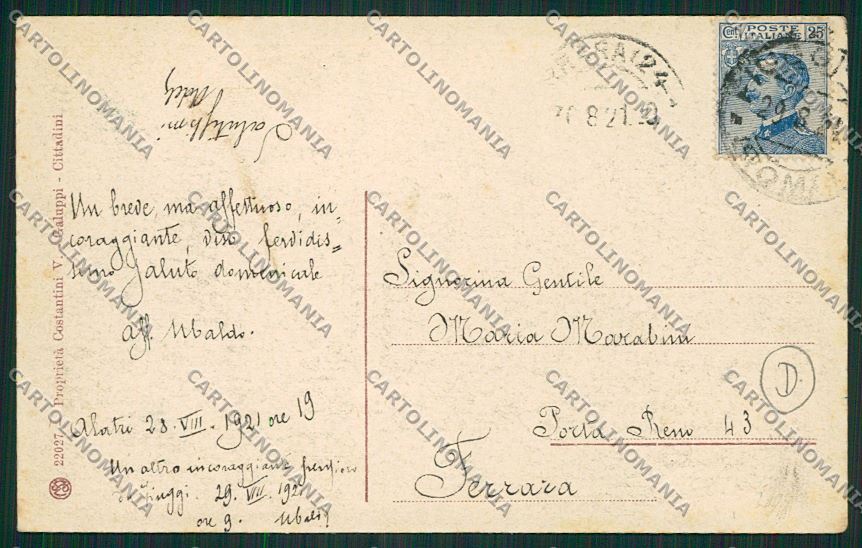 22027 - Proprietà Costantini V. - Galuppi - Cittadini
Un breve, ma affettuoso, in-
coraggiante, direi fervidis=
simo saluto domenicale
aff. Ubaldo.
Alatri 28 VIII. 1921 ore 19
Un altro incoraggiante pensiero
Fiuggi. 29. VIII. 1921
ore 9. Ubaldo
FERRARA (24-
8 21
Cent. POSTE ITALIANE 25
29 8 21
ROMA
Signorina Gentile
Maria Marabini
D.
Porta Reno 43
Ferrara
CARTOLINOMANIA